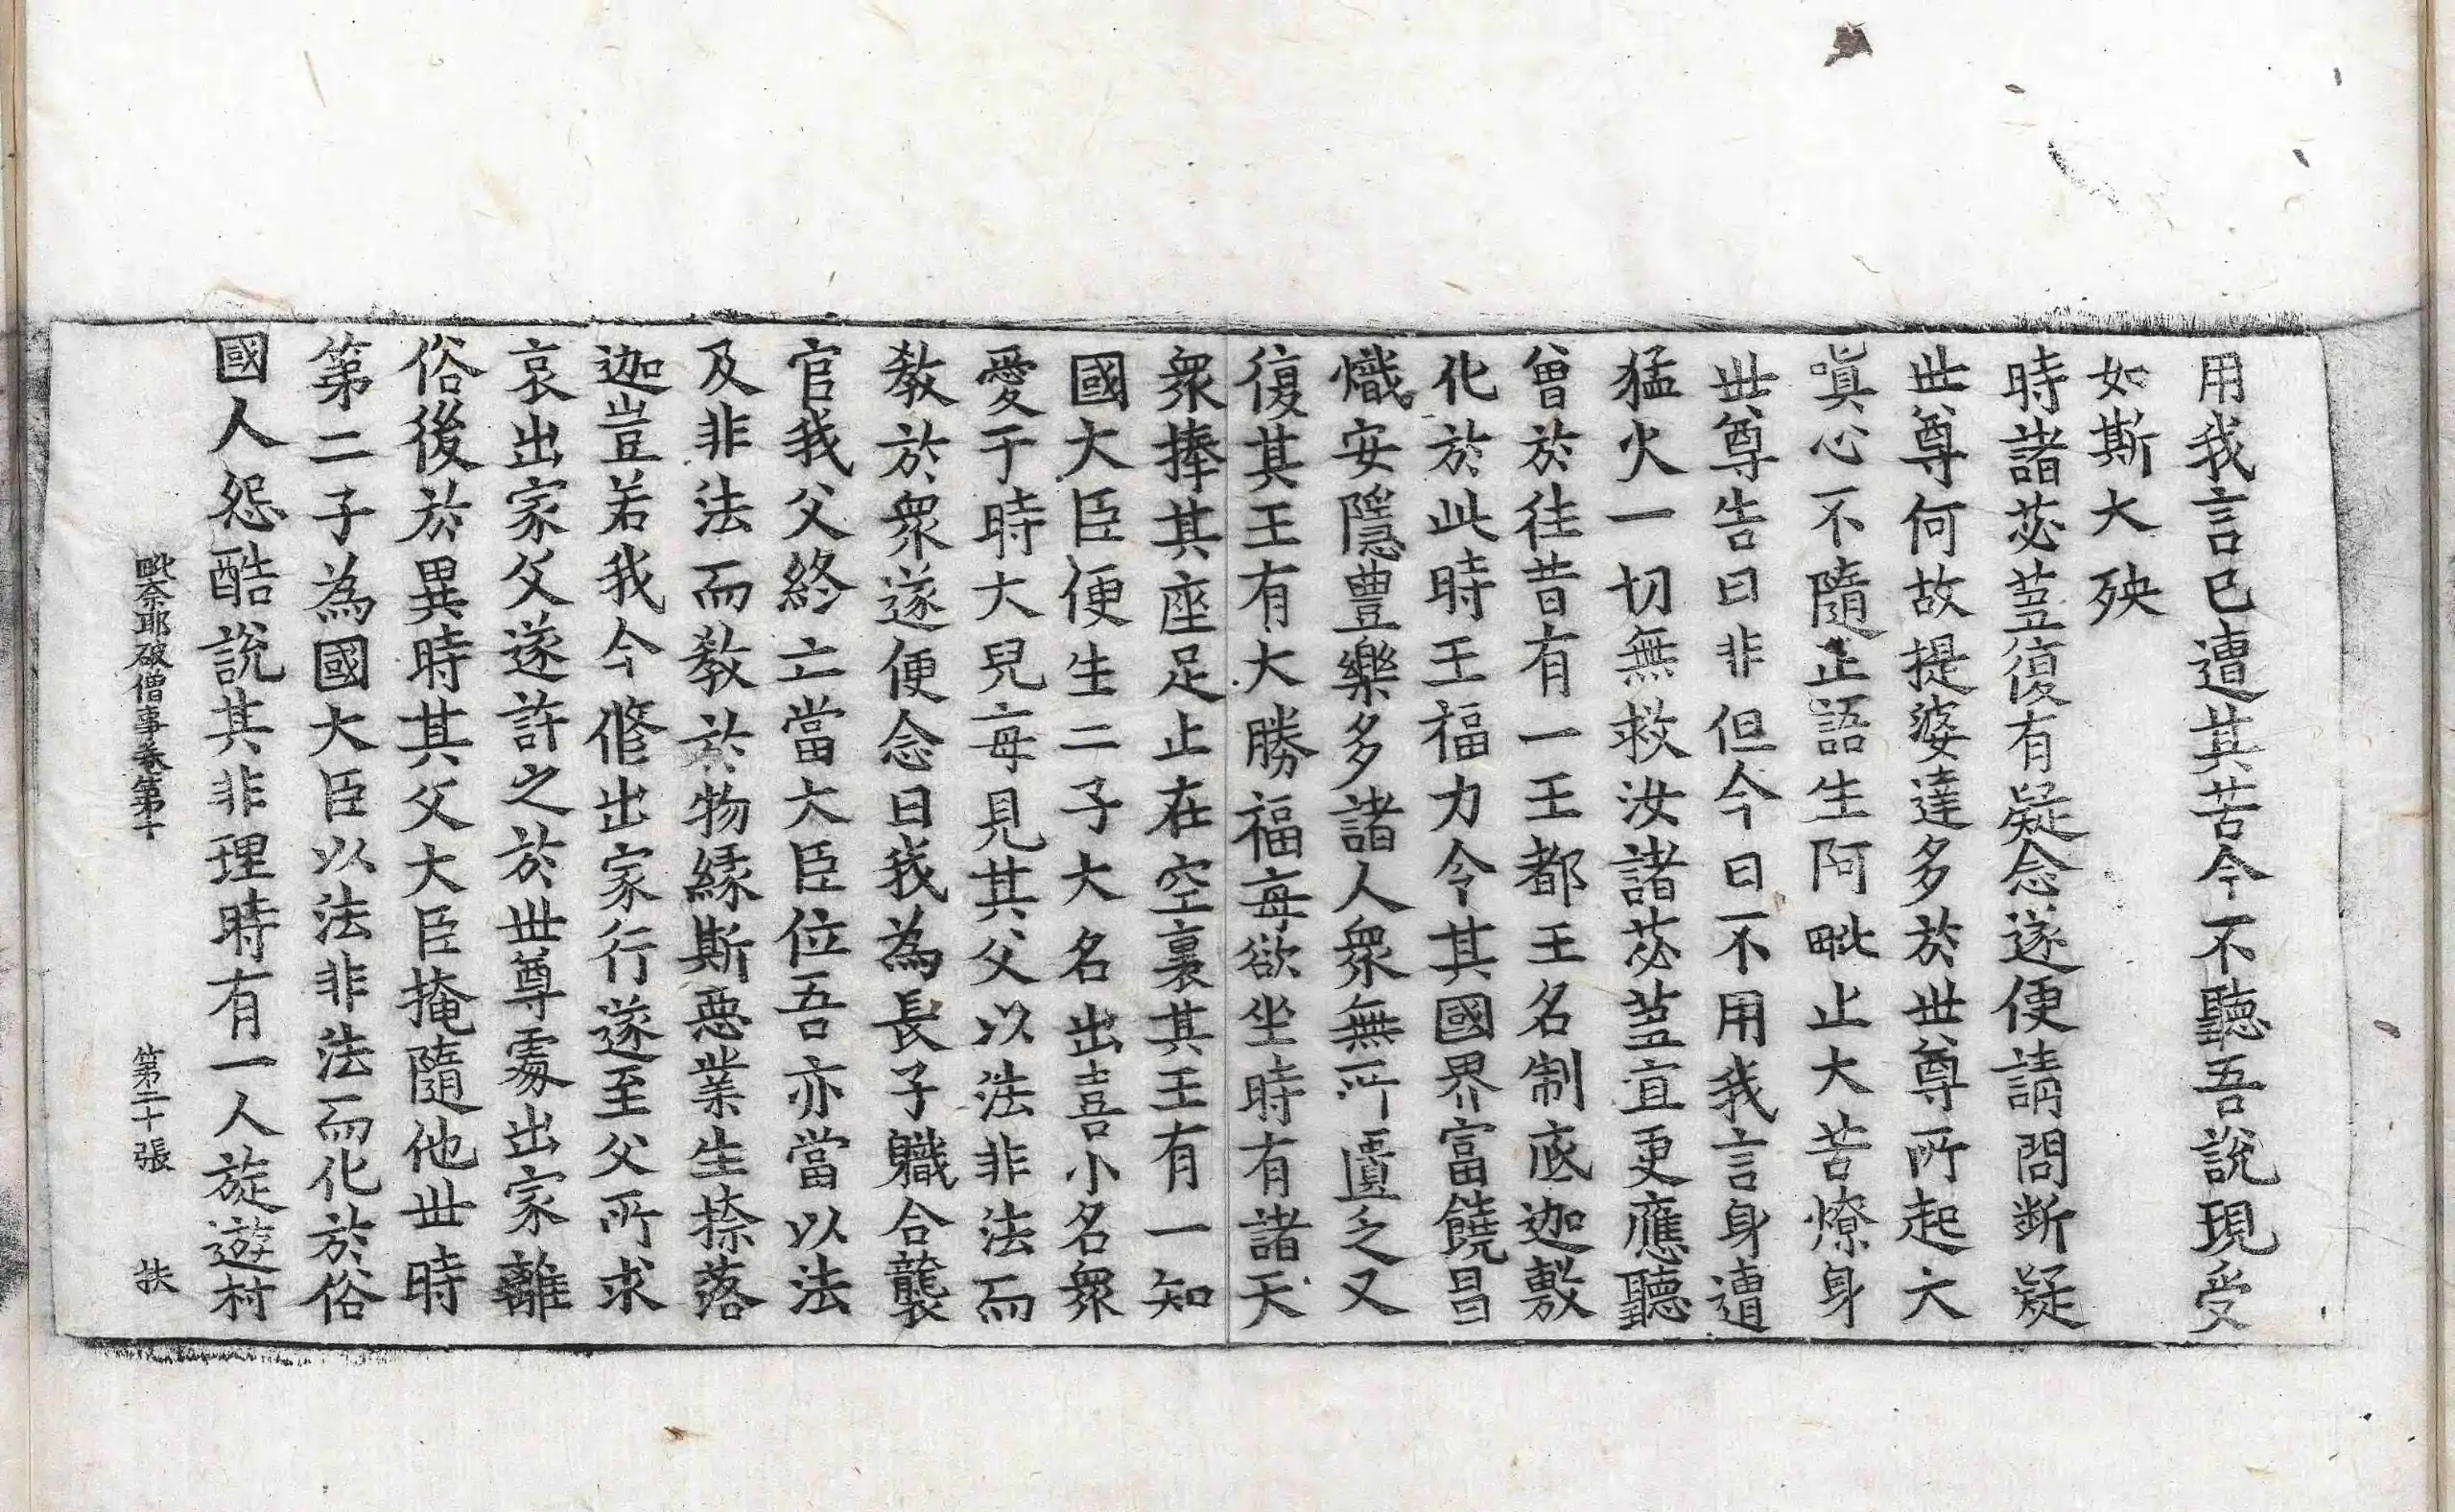 用我言已遭其苦今不聽吾說現受
如斯大殃
時諸苾蒭復有疑念遂便請問斷疑
世尊何故提婆達多於世尊所起大
嗔心不隨正語生阿毗止大苦燎身
世尊告曰非但今日不用我言身遭
猛火一切無救汝諸苾蒭宜更應聽
曾於往昔有一王都王名制底迦敷
化於此時王福力令其國界富饒昌
熾安隱豊樂多諸人衆無所匱乏又
復其王有大勝福每欲坐時有諸天
衆捧其座足止在空裏其王有一知
國大臣便生二子大名出喜小名衆
愛于時大兒每見其父以法非法而
教於衆遂便念曰我為長子職合襲
官我父終亡當大臣位吾亦當以法
及非法而教於物緣斯惡業生捺落
迦豈若我今修出家行遂至父所求
哀出家父遂許之於世尊處出家離
俗後於異時其父大臣掩隨他世時
第二子為國大臣以法非法而化於俗
國人怨酷說其非理時有一人旋遊村
毗奈耶破僧事卷第十　第二十張　扶